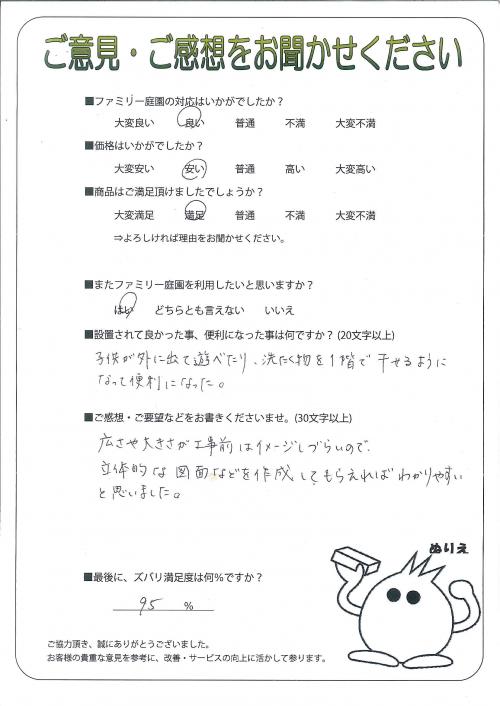 ご意見・ご感想をお聞かせください
■ファミリー庭園の対応はいかがでしたか？
大変良い　良い　普通　不満　大変不満
■価格はいかがでしたか？
大変安い　安い　普通　高い　大変高い
■商品はご満足頂けましたでしょうか？
大変満足　満足　普通　不満　大変不満
⇒よろしければ理由をお聞かせください。
■またファミリー庭園を利用したいと思いますか？
はい　どちらとも言えない　いいえ
■設置されて良かった事、便利になった事は何ですか？(20文字以上)
子供が外に出て遊べたり、洗たく物を1階で干せるように
なって便利になった。
■ご感想・ご要望などをお書きくださいませ。(30文字以上)
広さや大きさが工事前はイメージしづらいので、
立体的な図面などを作成してもらえればわかりやすい
と思いました。
ぬりえ
■最後に、ズバリ満足度は何％ですか？
95 ％
ご協力頂き、誠にありがとうございました。
お客様の貴重な意見を参考に、改善・サービスの向上に活かして参ります。